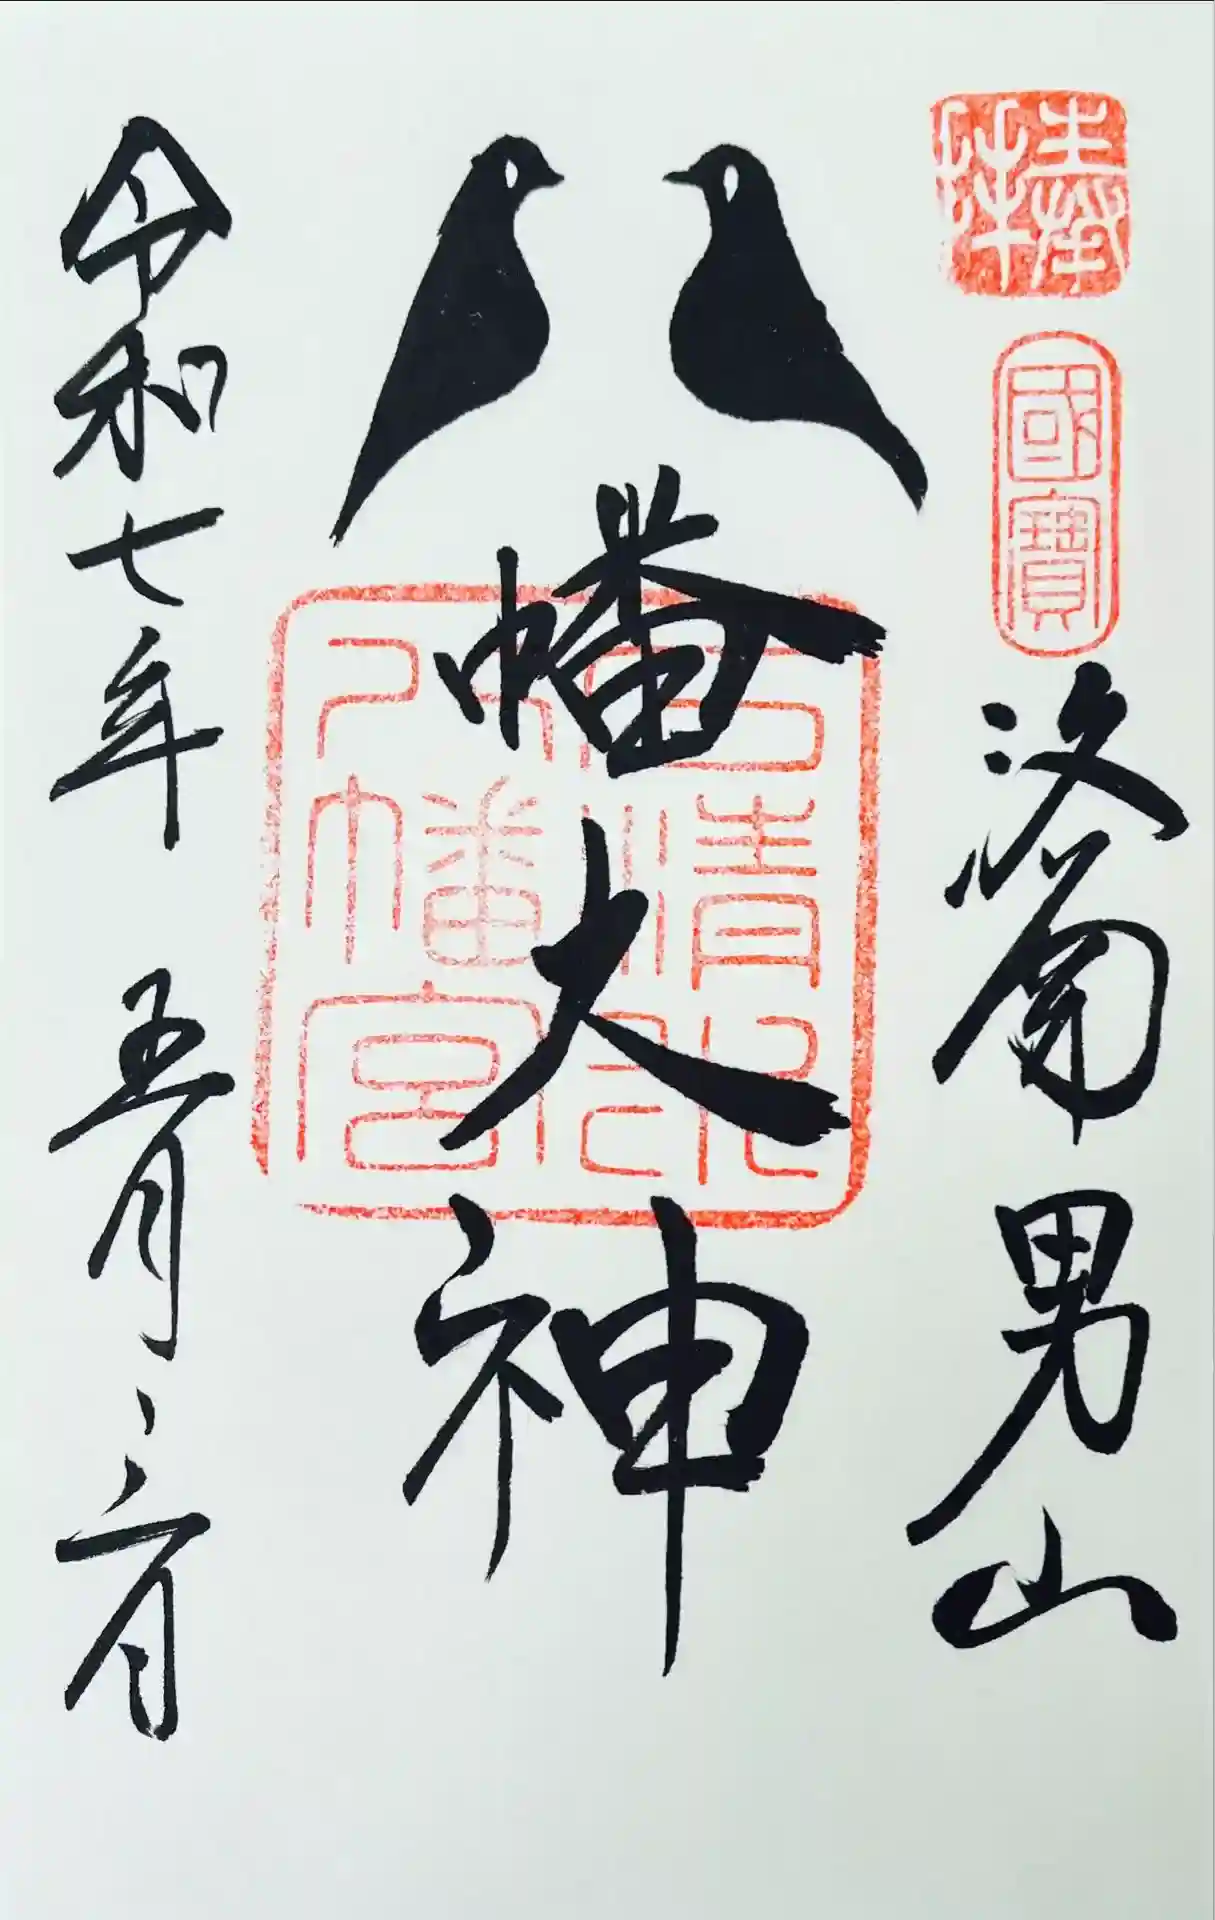 奉拝
國寶
洛南男山
幡大神
石清水
八幡宮
令和七年 五月三日